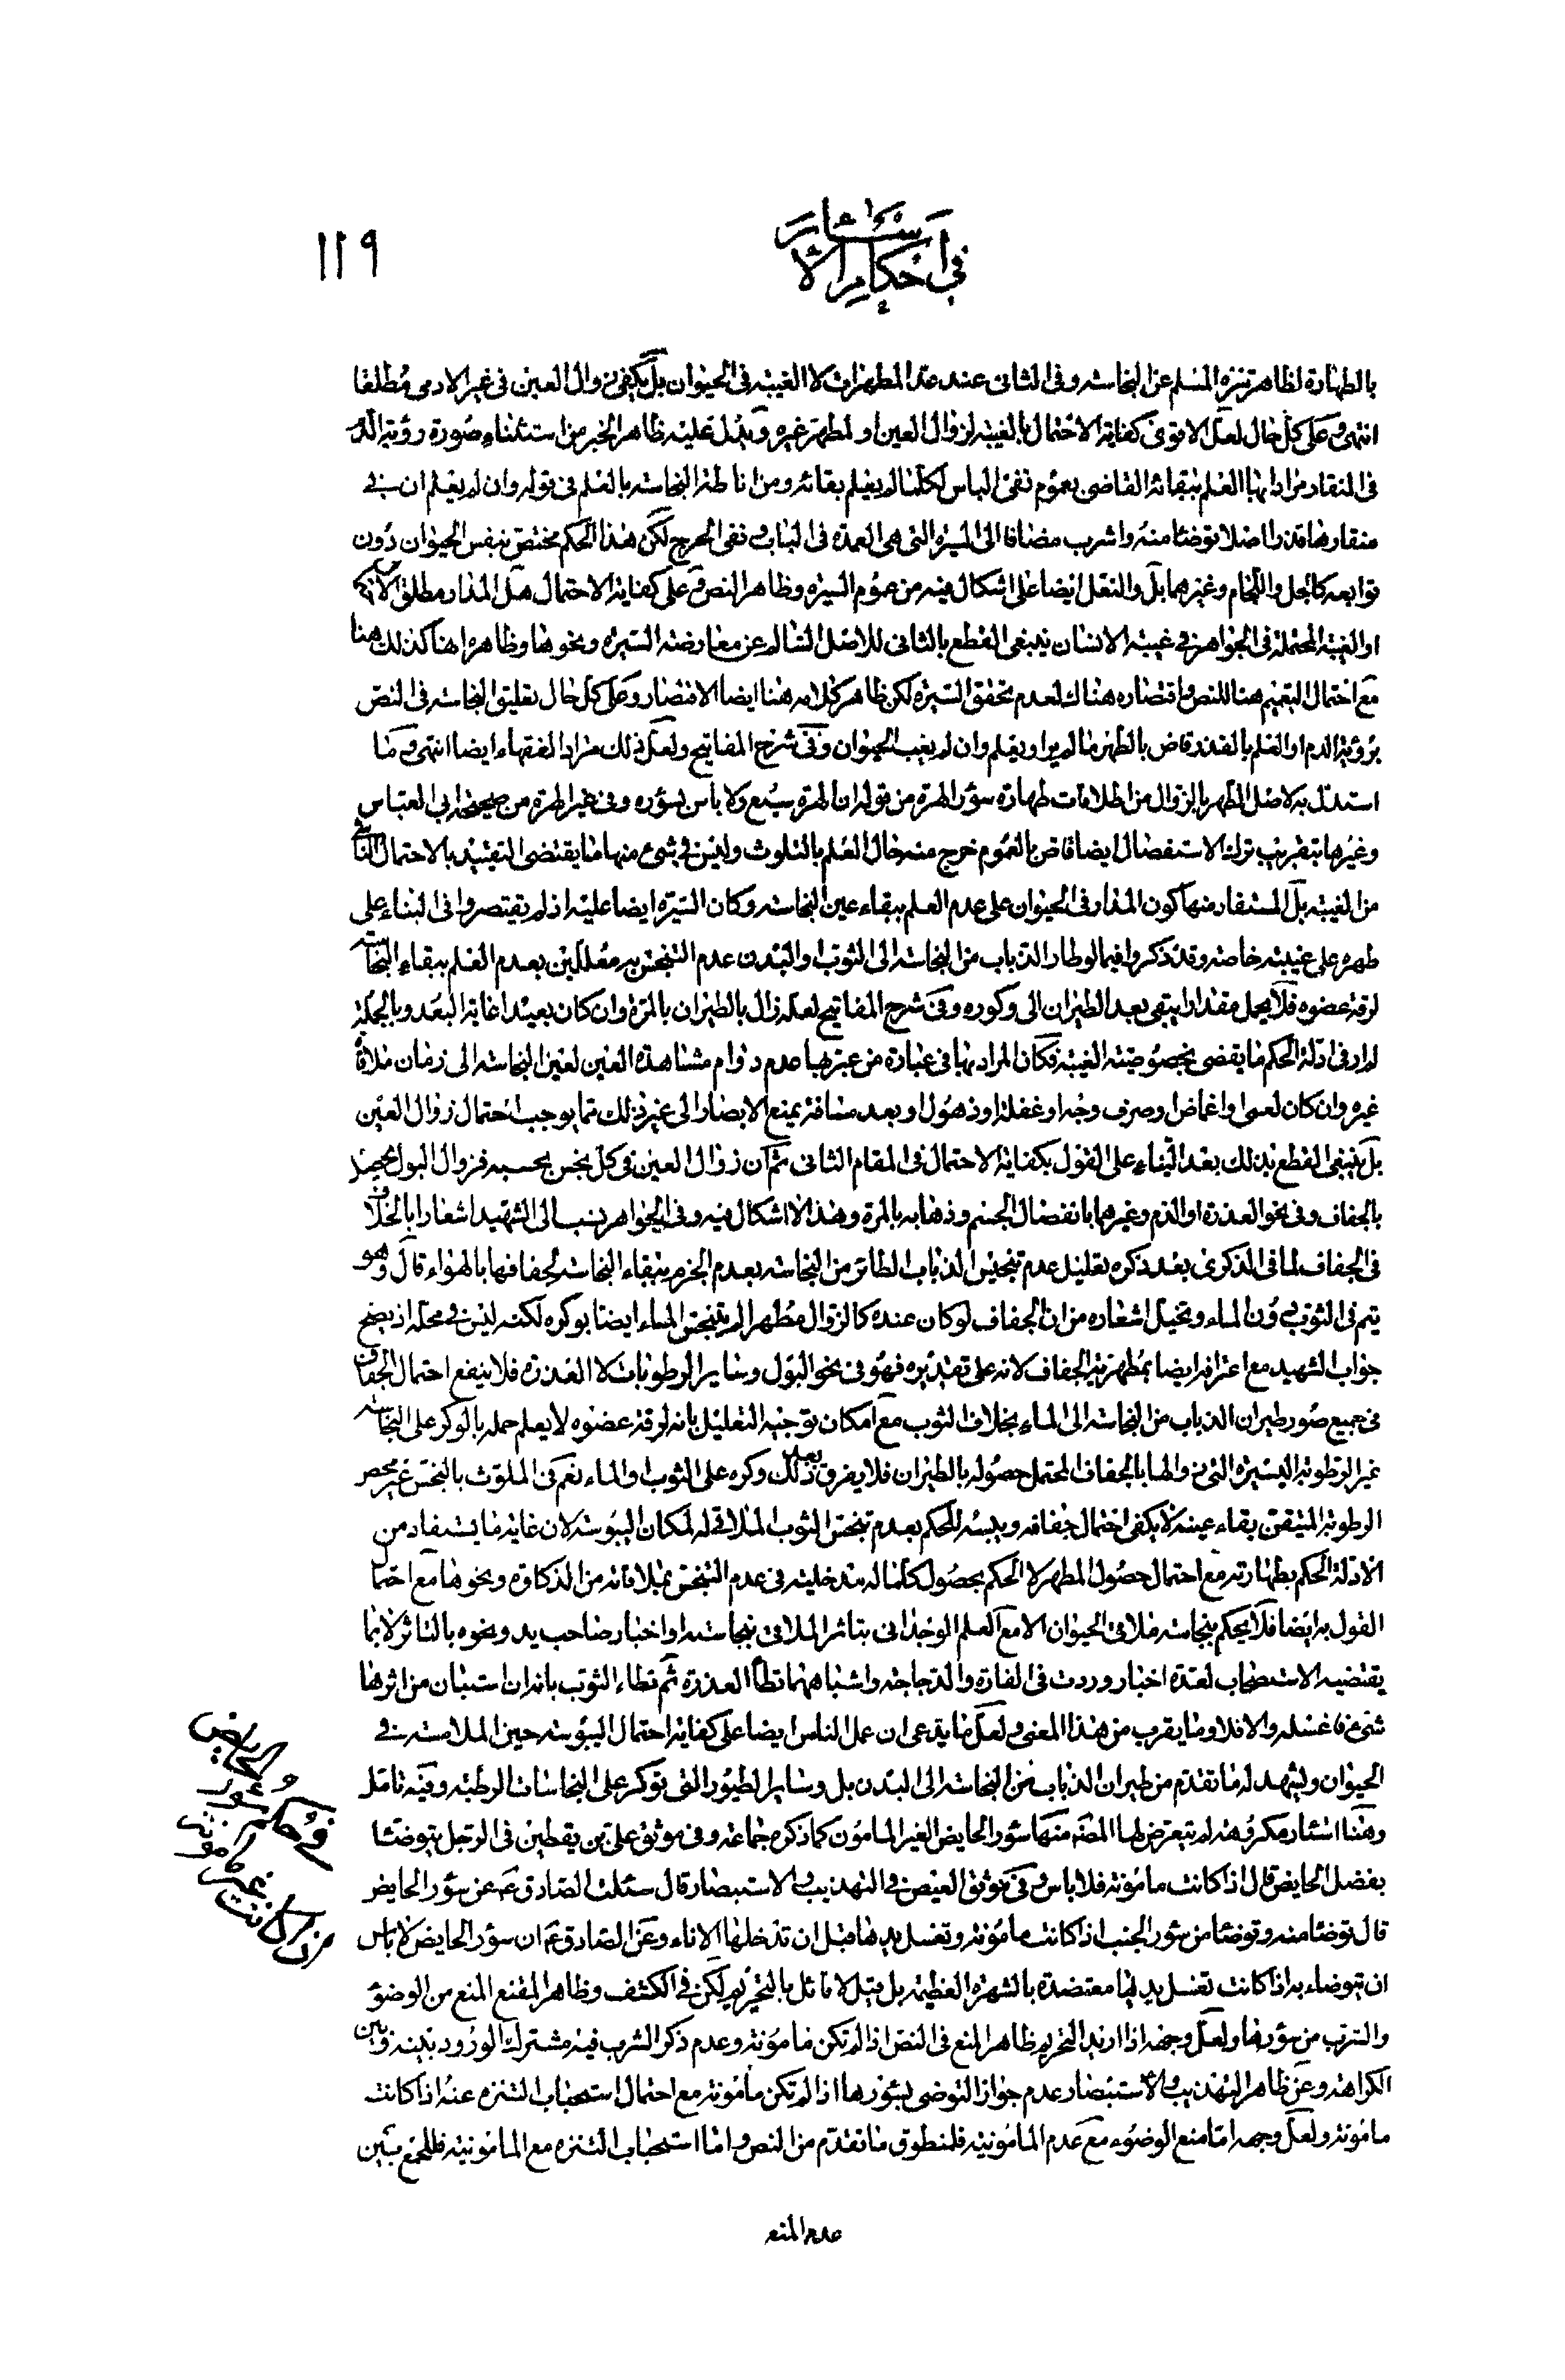 في احكام الاسئار
١١٩
بالطهارة لظاهر تنزه المسلم عن النجاسة وفي الثاني عند عد المطهرات لا الغيبة في الحيوان بل يكفي زوال العين في غير الادمي مطلقا
انتهى وعلى كل حال لعل الاقوى كفاية الاحتمال بالغيبة لزوال العين او لمطهر غيره ويدل عليه ظاهر الخبر من استثناء صورة رؤية الدم
في المنقار مرادا بها العلم ببقائه القاضي بعموم نفي الباس لكلما لم يعلم بقائه ومن اناطة النجاسة بالعلم في قوله وان لم يعلم ان في
منقارها قذرا اصلا توضئا منه واشرب مضافا الى السيرة التي هي العمدة في الباب ونفي الحرج لكن هذا الحكم مختص بنفس الحيوان دون
توابعه كالجل واللجام وغيرهما بل والنعل ايضا على اشكال فيه من عموم السيرة وظاهر النص وعلى كفاية الاحتمال هل المدار مطلق
او الغيبة المحتملة في الجواهر في غيبة الانسان ينبغي القطع بالثاني للاصل السالم عن معارضة السيرة ونحوها وظاهره هنا كذلك هنا
مع احتمال التعميم هنا للنص واقتصاره هناك لعدم تحقق السيرة لكن ظاهر كلامه هنا ايضا الاقتصار وعلى كل حال تعليق النجاسة في النص
برؤية الدم او العلم بالقذر قاض بالطهر ما لم ير او يعلم وان لم يغب الحيوان وفي شرح المفاتيح ولعل ذلك مراد الفقهاء ايضا انتهى وما
استدل به لاصل الطهر بالزوال من اطلاقات طهارة سؤر الهرة من قوله ان الهرة سبع ولا باس بسؤره وفي غير الهرة من صحيحة ابي العباس
وغيرها بتقريب ترك الاستفصال ايضا قاض بالعموم خرج منه حال العلم بالتلوث وليس في شيء منها ما يقتضي التقييد بالاحتمال الناشي
من الغيبة بل المستفاد منها كون المدار في الحيوان على عدم العلم ببقاء عين النجاسة وكان السيرة ايضا عليه اذ لم يقتصروا في البناء على
طهره على غيبته خاصة وقد ذكروا فيما لو طار الذباب من النجاسة الى الثوب والبدن عدم التنجس به معللين بعدم العلم ببقاء النجاسة
لرقة عضوه فلا يحمل مقدارا يبقى بعد الطيران الى وكوره وفي شرح المفاتيح لعله زال بالطيران بالمرة وان كان بعيدا غاية البعد وبالجملة
لم ار في ادلة الحكم ما يقضي بخصوصية الغيبة فكان المراد بها في عبارة من عبر بها عدم دوام مشاهدة العين لعين النجاسة الى زمان ملاقاة
غيره وان كان لعمى واغماض او صرف وجه او غفلة او ذهول او بعد مسافة يمنع الابصار الى غير ذلك مما يوجب احتمال زوال العين
بل ينبغي القطع بذلك بعد البناء على القول بكفاية الاحتمال في المقام الثاني ثم ان زوال العين في كل نجس بحسبه فزوال البول يحصل
بالجفاف وفي نحو العذرة او الدم وغيرهما بانفصال الجسم وذهابه بالمرة وهذا لا اشكال فيه وفي الجواهر نسب الى الشهيد اشعارا بالخلاف
في الجفاف لما في الذكرى بعد ذكره تعليل عدم تنجيس الذباب الطائر من النجاسة بعدم الجزم ببقاء النجاسة لجفافها بالهواء قال وهو
يتم في الثوب دون الماء وتخيل اشعاره من ان الجفاف لو كان عنده كالزوال مطهرا لم يتنجس الماء ايضا بوكره لكنه ليس في محله اذ يصح
جواب الشهيد مع اعترافه ايضا بمطهرية الجفاف لانه على تقديره فهو في نحو البول وساير الرطوبات لا العذرة فلا ينفع احتمال الجفاف
في جميع صور طيران الذباب من النجاسة الى الماء بخلاف الثوب مع امكان توجيه التعليل بانه لرقة عضوه لا يعلم حمله بالوكر على النجاسة
غير الرطوبة اليسيرة التي زوالها بالجفاف المحتمل حصوله بالطيران فلا يفرق بعد ذلك وكره على الثوب او الماء نعم في الملوث بالنجس غير محض
الرطوبة المتيقن بقاء عينه لا يكفي احتمال جفافه ويبسه للحكم بعدم تنجس الثوب الملاقي له لمكان اليبوسة لان غاية ما يستفاد من
الادلة الحكم بطهارته مع احتمال حصول المطهر لا الحكم بحصول كلما له مدخلية في عدم التنجس بملاقاته من الذكاوة ونحوها مع احتمال
القول به ايضا فلا يحكم بنجاسة ملاقي الحيوان الا مع العلم الوجداني بتاثر الملاقي بنجاسته او اخبار صاحب يد ونحوه بالتاثر لا بما
يقتضيه الاستصحاب لعدة اخبار وردت في الفارة والدجاجة واشباههما تطأ العذرة ثم تطاء الثوب بانه ان استبان من اثرها
شيء فاغسله والا فلا وما يقرب من هذا المعنى ولعل ما يدعى ان عمل الناس ايضا على كفاية احتمال اليبوسة حين الملامسة في
الحيوان ويشهد له ما تقدم من طيران الذباب من النجاسة الى البدن بل وساير الطيور التي توكر على النجاسات الرطبة وفيه تامل
وهنا اسئار مكروهة لم يتعرض لها المصنف منها سؤر الحايض الغير المامون كما ذكره جماعة وفي موثق علي بن يقطين في الرجل يتوضئا
بفضل الحايض قال اذا كانت مامونة فلا باس وفي موثق العيص في التهذيب والاستبصار قال سئلت الصادق ع عن سؤر الحايض
قال توضئا منه وتوضئا من سؤر الجنب اذا كانت مامونة وتغسل يديها قبل ان تدخلها الاناء وعن الصادق ع ان سؤر الحايض لا باس
ان يتوضاء به اذا كانت تغسل يديها معتضدة بالشهرة العظيمة بل قيل لا قائل بالتحريم لكن في الكشف وظاهر المقنع المنع من الوضوء
والشرب من سؤرها ولعل وجهه اذا اريد التحريم ظاهر المنع في النص اذا لم تكن مامونة وعدم ذكر الشرب فيه مشترك الورود بينه وبين
الكراهة وعن ظاهر التهذيب والاستبصار عدم جواز التوضي بسؤرها اذا لم تكن مامونة مع احتمال استحباب التنزه عنه اذا كانت
مامونة ولعل وجهه اما منع الوضوء مع عدم المامونية فلمنطوق ما تقدم من النص واما استحباب التنزه مع المامونية فللجمع بين
في حكم سؤر الحايض
من كانت غير مامونة
عدم المنع